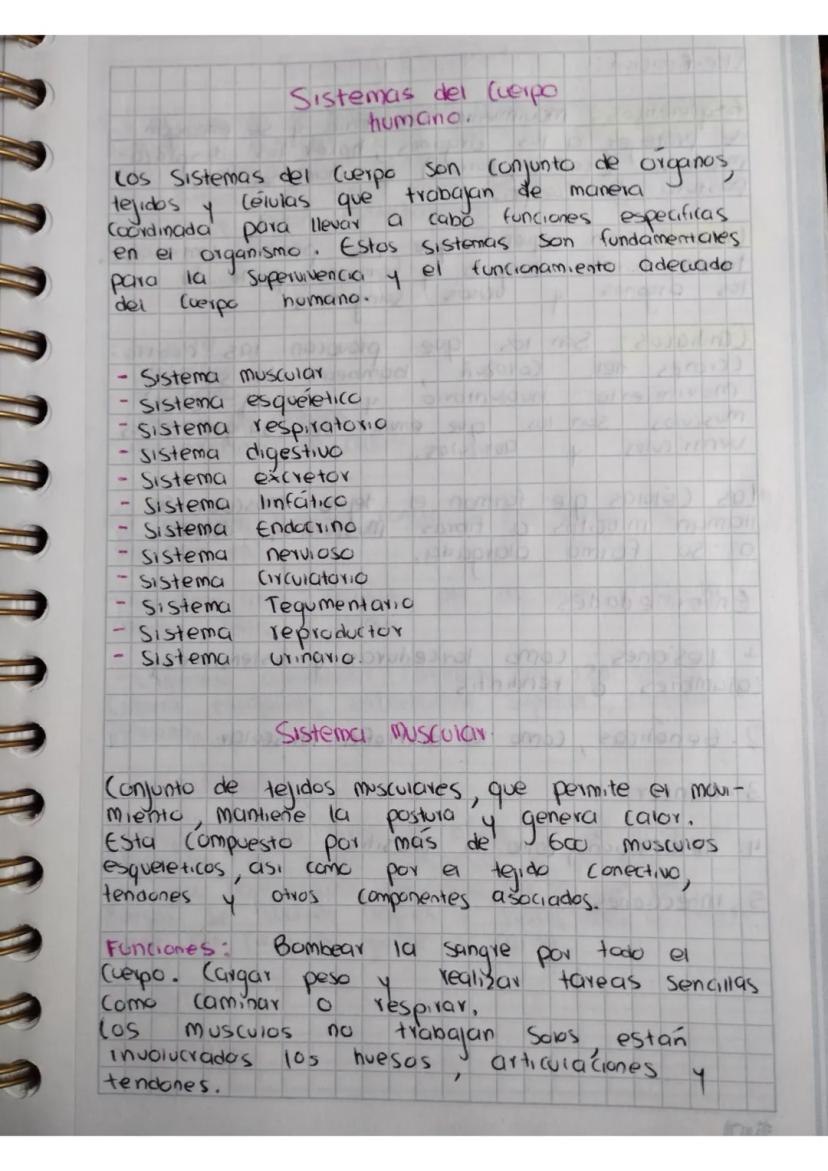 Sistemas del Cuerpo
humano.
Los Sistemas del Cuerpo son conjunto de órganos,
tejidos y células que trabajan de manera
coordinada para llevar a cabo funciones especificas
en el organismo. Estos sistemas son fundamentales
para la supervivencia y el funcionamiento adecuado
del Cuerpo humano.
- Sistema muscular
- Sistema esquéletico
- Sistema respiratorio
- Sistema digestivo
- Sistema excretor
- Sistema linfático
- Sistema Endocrino
- Sistema nervioso
- Sistema Circulatorio
- Sistema Tegumentario
- Sistema reproductor
- Sistema urinario.
Sistema Muscular
Conjunto de tejidos musculares, que permite el movi-
miento, mantiene la postura y genera calor.
Esta Compuesto por más de 600 musculos
esqueleticos, asi como por el tejido conectivo,
tendones y otros componentes asociados.
Funciones: Bombear la sangre por todo el
Cuerpo. Cargar peso y realizar tareas sencillas
como caminar o respirar.
Los musculos no trabajan solos, están
involucrados los huesos, articulaciones y
tendones.